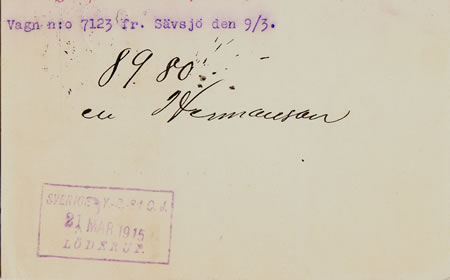 Vagn n:o 7123 fr. Sävsjö den 9/3.
89.80
Hermanson
21 MAR 1915
LÖDERUP.